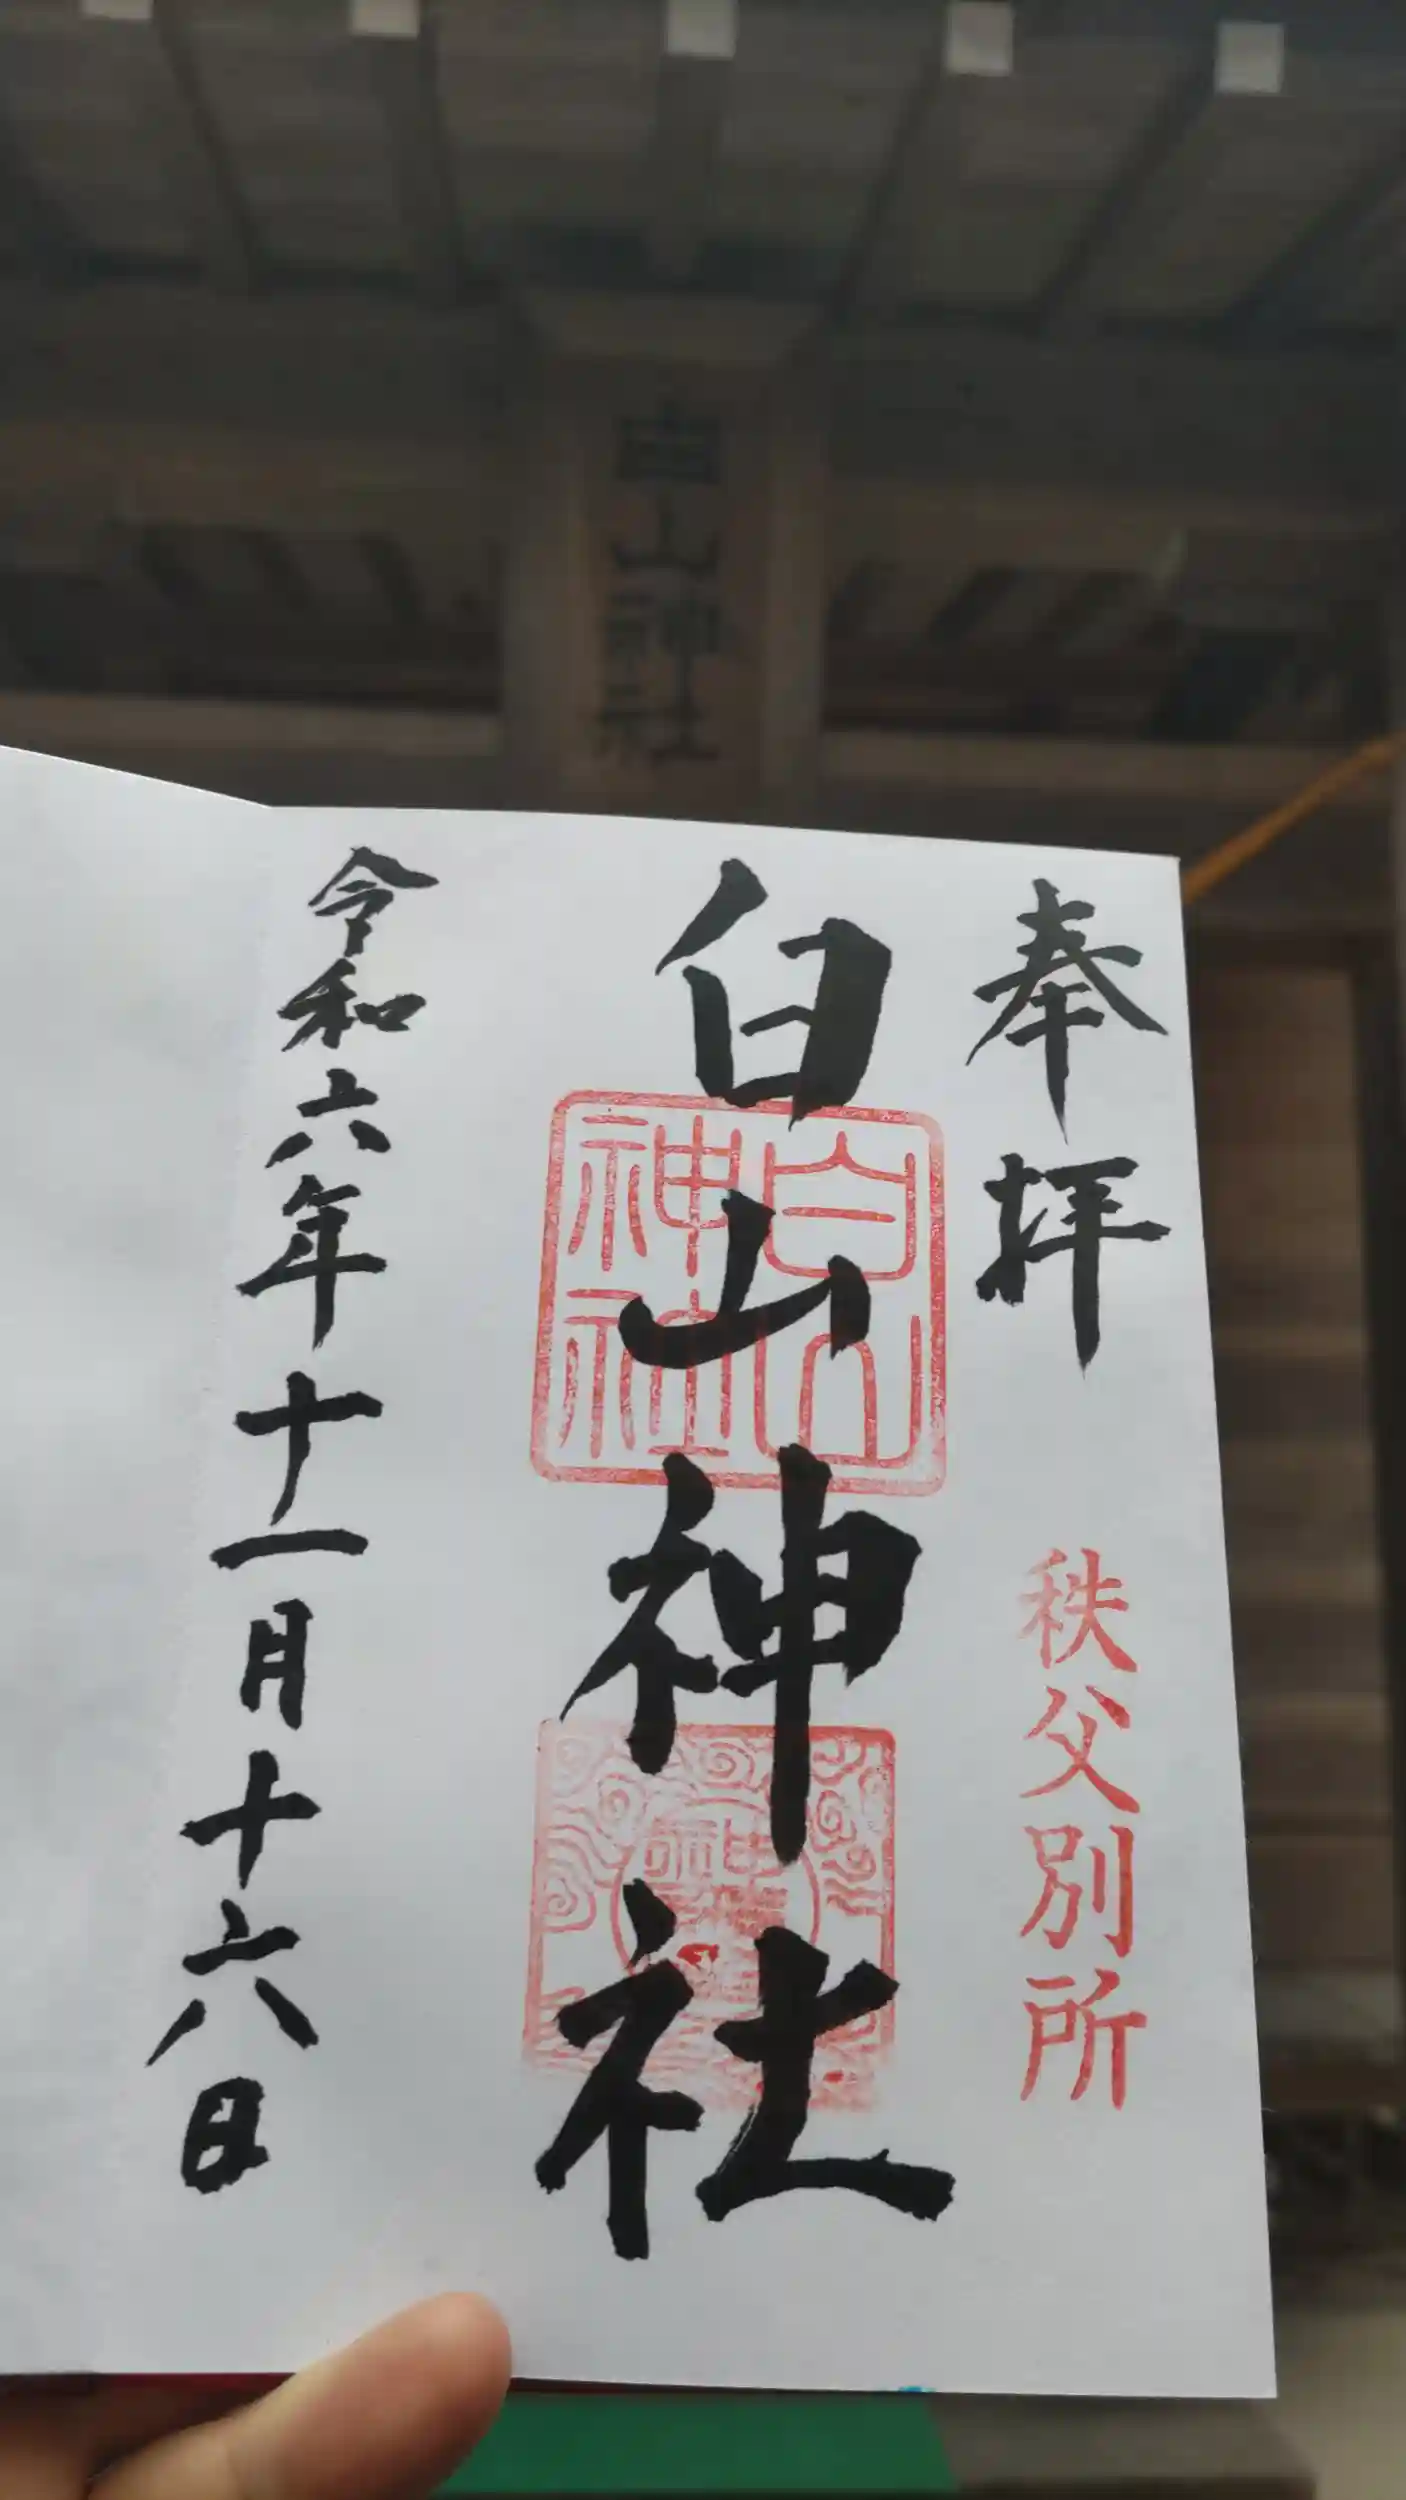 白山神社
奉拝
秩父別所
白山神社
白山
神社
令和六年十一月十六日